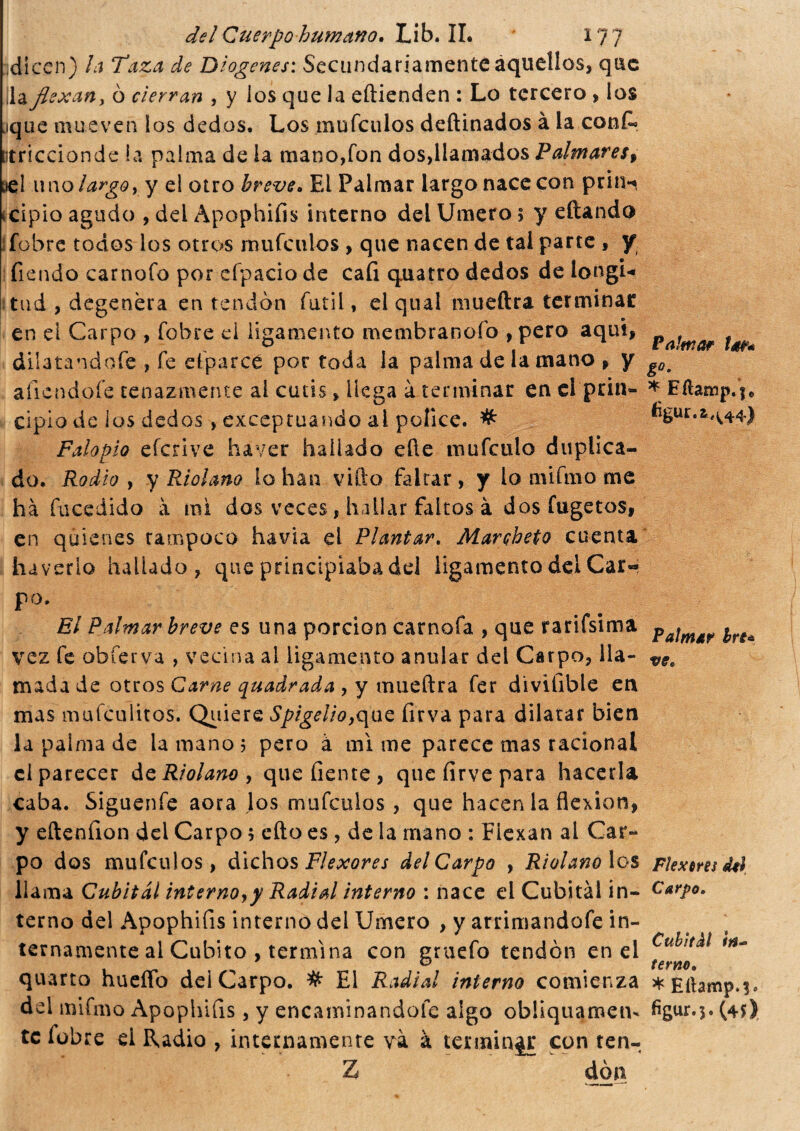 del Cuerpo humano. Lib. II. 177
dicen) la Taza de Diogenes: Secundariamente aquellos, que
la flexan, ò cierran , y los que la eſtienden : Lo tercero , los
que mueven los dedos. Los muſculos deſtinados à la conſ-
triccionde la palma de la mano,ſon dos,llamados Palmares,
el uno largo, y el otro breve. El Palmar largo nace con prin-
cipio agudo , del Apophiſis interno del Umero ; y eſtando
ſobre todos los otros muſculos , que nacen de tal parte , y
ſiendo carnoſo por eſpacio de caſi quatro dedos de longi-
tud , degenèra en tendòn ſutil, el qual mueſtra terminar
en el Carpo , ſobre el ligamento membranoſo , pero aqui,
dilatandoſe , ſe eſparce por toda la palma de la mano , y
aſiendoſe tenazmente al cutis , llega à terminar en el prin-
cipio de los dedos , exceptuando al police. *
Palmar lar-
go.
* Eſtamp.3.
figur.2.(44)
Falopio eſcrive haver hallado eſte muſculo duplica-
do. Rodio , y Riolano lo han viſto faltar, y lo miſmo me
hà ſucedido à mì dos veces , hallar faltos à dos ſugetos,
en quienes tampoco havia el Plantar. Marcheto cuenta
haverlo hallado , que principiaba del ligamento del Car-
po.
El Palmar breve es una porcion carnoſa , que rariſsima
vez ſe obſerva , vecina al ligamento anular del Carpo, lla-
mada de otros Carne quadrada , y mueſtra ſer diviſible en
mas muſculitos. Quiere Spigelio,que ſirva para dilatar bien
la palma de la mano ; pero à mì me parece mas racional
el parecer de Riolano , que ſiente , que ſirve para hacerla
caba. Siguenſe aora los muſculos , que hacen la flexion,
y eſtenſion del Carpo ; eſto es , de la mano : Flexan al Car-
po dos muſculos , dichos Flexores del Carpo , Riolano los
llama Cubitàl interno, y Radial interno : nace el Cubitàl in-
terno del Apophiſis interno del Umero , y arrimandoſe in-
ternamente al Cubito , termìna con grueſo tendòn en el
quarto hueſſo del Carpo. * El Radial interno comienza
del miſmo Apophiſis , y encaminandoſe algo obliquamen-
te ſobre el Radio , internamente và à terminar con ten-
Palmar bre-
ve.
Flexores del
Carpo.
Cubitàl in-
terno.
* Eſtamp.3.
figur.3.(45)
Z dòn